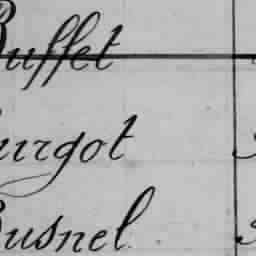 Buffet
urgot
Busnel